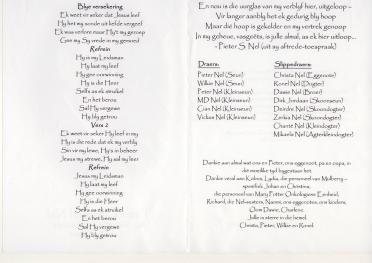 Blye versekering
Ek weet vir seker dat Jesus leef
Hy het my sonde uit liefde vergeef
Ek was verlore maar Hy't my geroep
Gee my Sy vrede in my gemoed
Refrein
Hy is my Leidsman
Hy laat my leef
Hy gee oorwinning
Hy is die Heer
Selfs as ek struikel
En het berou
Sal Hy vergewe
Hy bly getrou
Vers 2
Ek weet vir seker Hy leef in my
Hy is die rede dat ek my verbly
Sin vir my lewe, Hy's in beheer
Jesus my strewe, Hy sal my leer
Refrein
Jesus my Leidsman
Hy laat my leef
Hy gee oorwinning
Hy is die Heer
Selfs as ek struikel
En het berou
Sal Hy vergewe
Hy bly getrou
En nou is die uurglas van my verblyf hier, uitgeloop –
Vir langer aanbly het ek gedurig bly hoop
Maar die hoop is gekelder en my vertrek geroep
In my geheue, vasgeëts, is julle almal, as ek hier uitloop...
- Pieter S. Nel (uit sy aftrede-toespraak)
Draers:
Pieter Nel (Seun)
Wilkie Nel (Seun)
Pieter Nel (Kleinseun)
MD Nel (Kleinseun)
Cian Nel (Kleinseun)
Vickus Nel (Kleinseun)
Slippedraers:
Christa Nel (Eggenote)
Renel Nel (Dogter)
Dawie Nel (Broer)
Dirk Jordaan (Skoonseun)
Deirdré Nel (Skoondogter)
Zerkia Nel (Skoondogter)
Chanté Nel (Kleindogter)
Mikaela Nel (Agterkleindogter)
Dankie aan almal wat ons en Pieter, ons eggenoot, pa en oupa, in
die moeilike tyd bygestaan het.
Dankie veral aan Kobus, Lydia, die personeel van Mulberry –
spesifiek Johan en Christina,
die personeel van Mary Potter Onkologiese Eenheid,
Richard, die Nel-susters, Naomi, ons eggenotes, ons kinders,
Oom Dawie, Charlene
Julle is sterre in die hemel.
Christa, Pieter, Wilkie en Renel